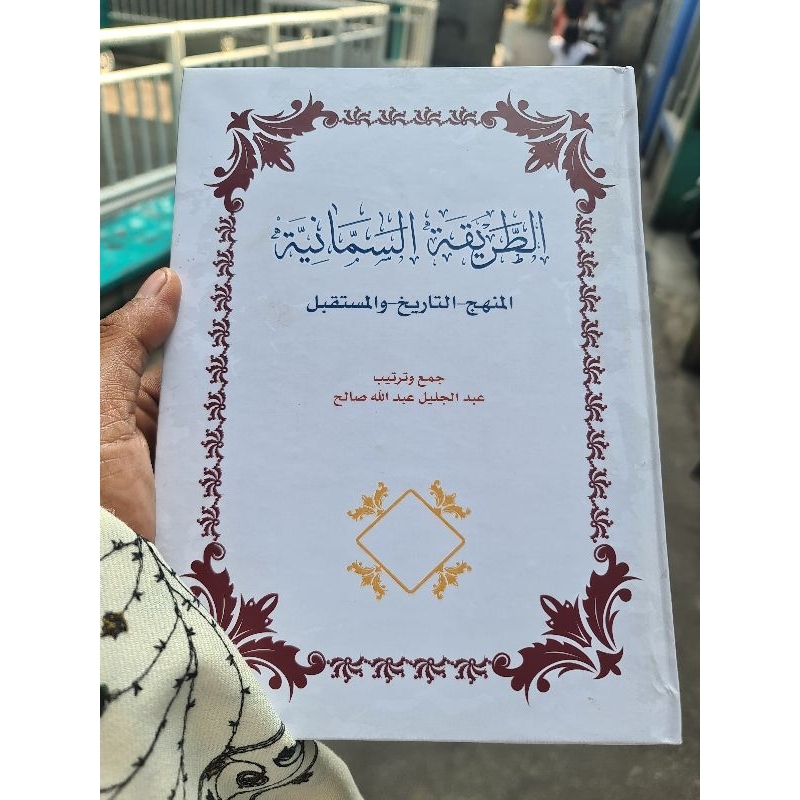 الطَّرِيقَةُ السَّمَّانِيَّةُ
المنهج-التاريخ-والمستقبل
جمع وترتيب
عبد الجليل عبد الله صالح